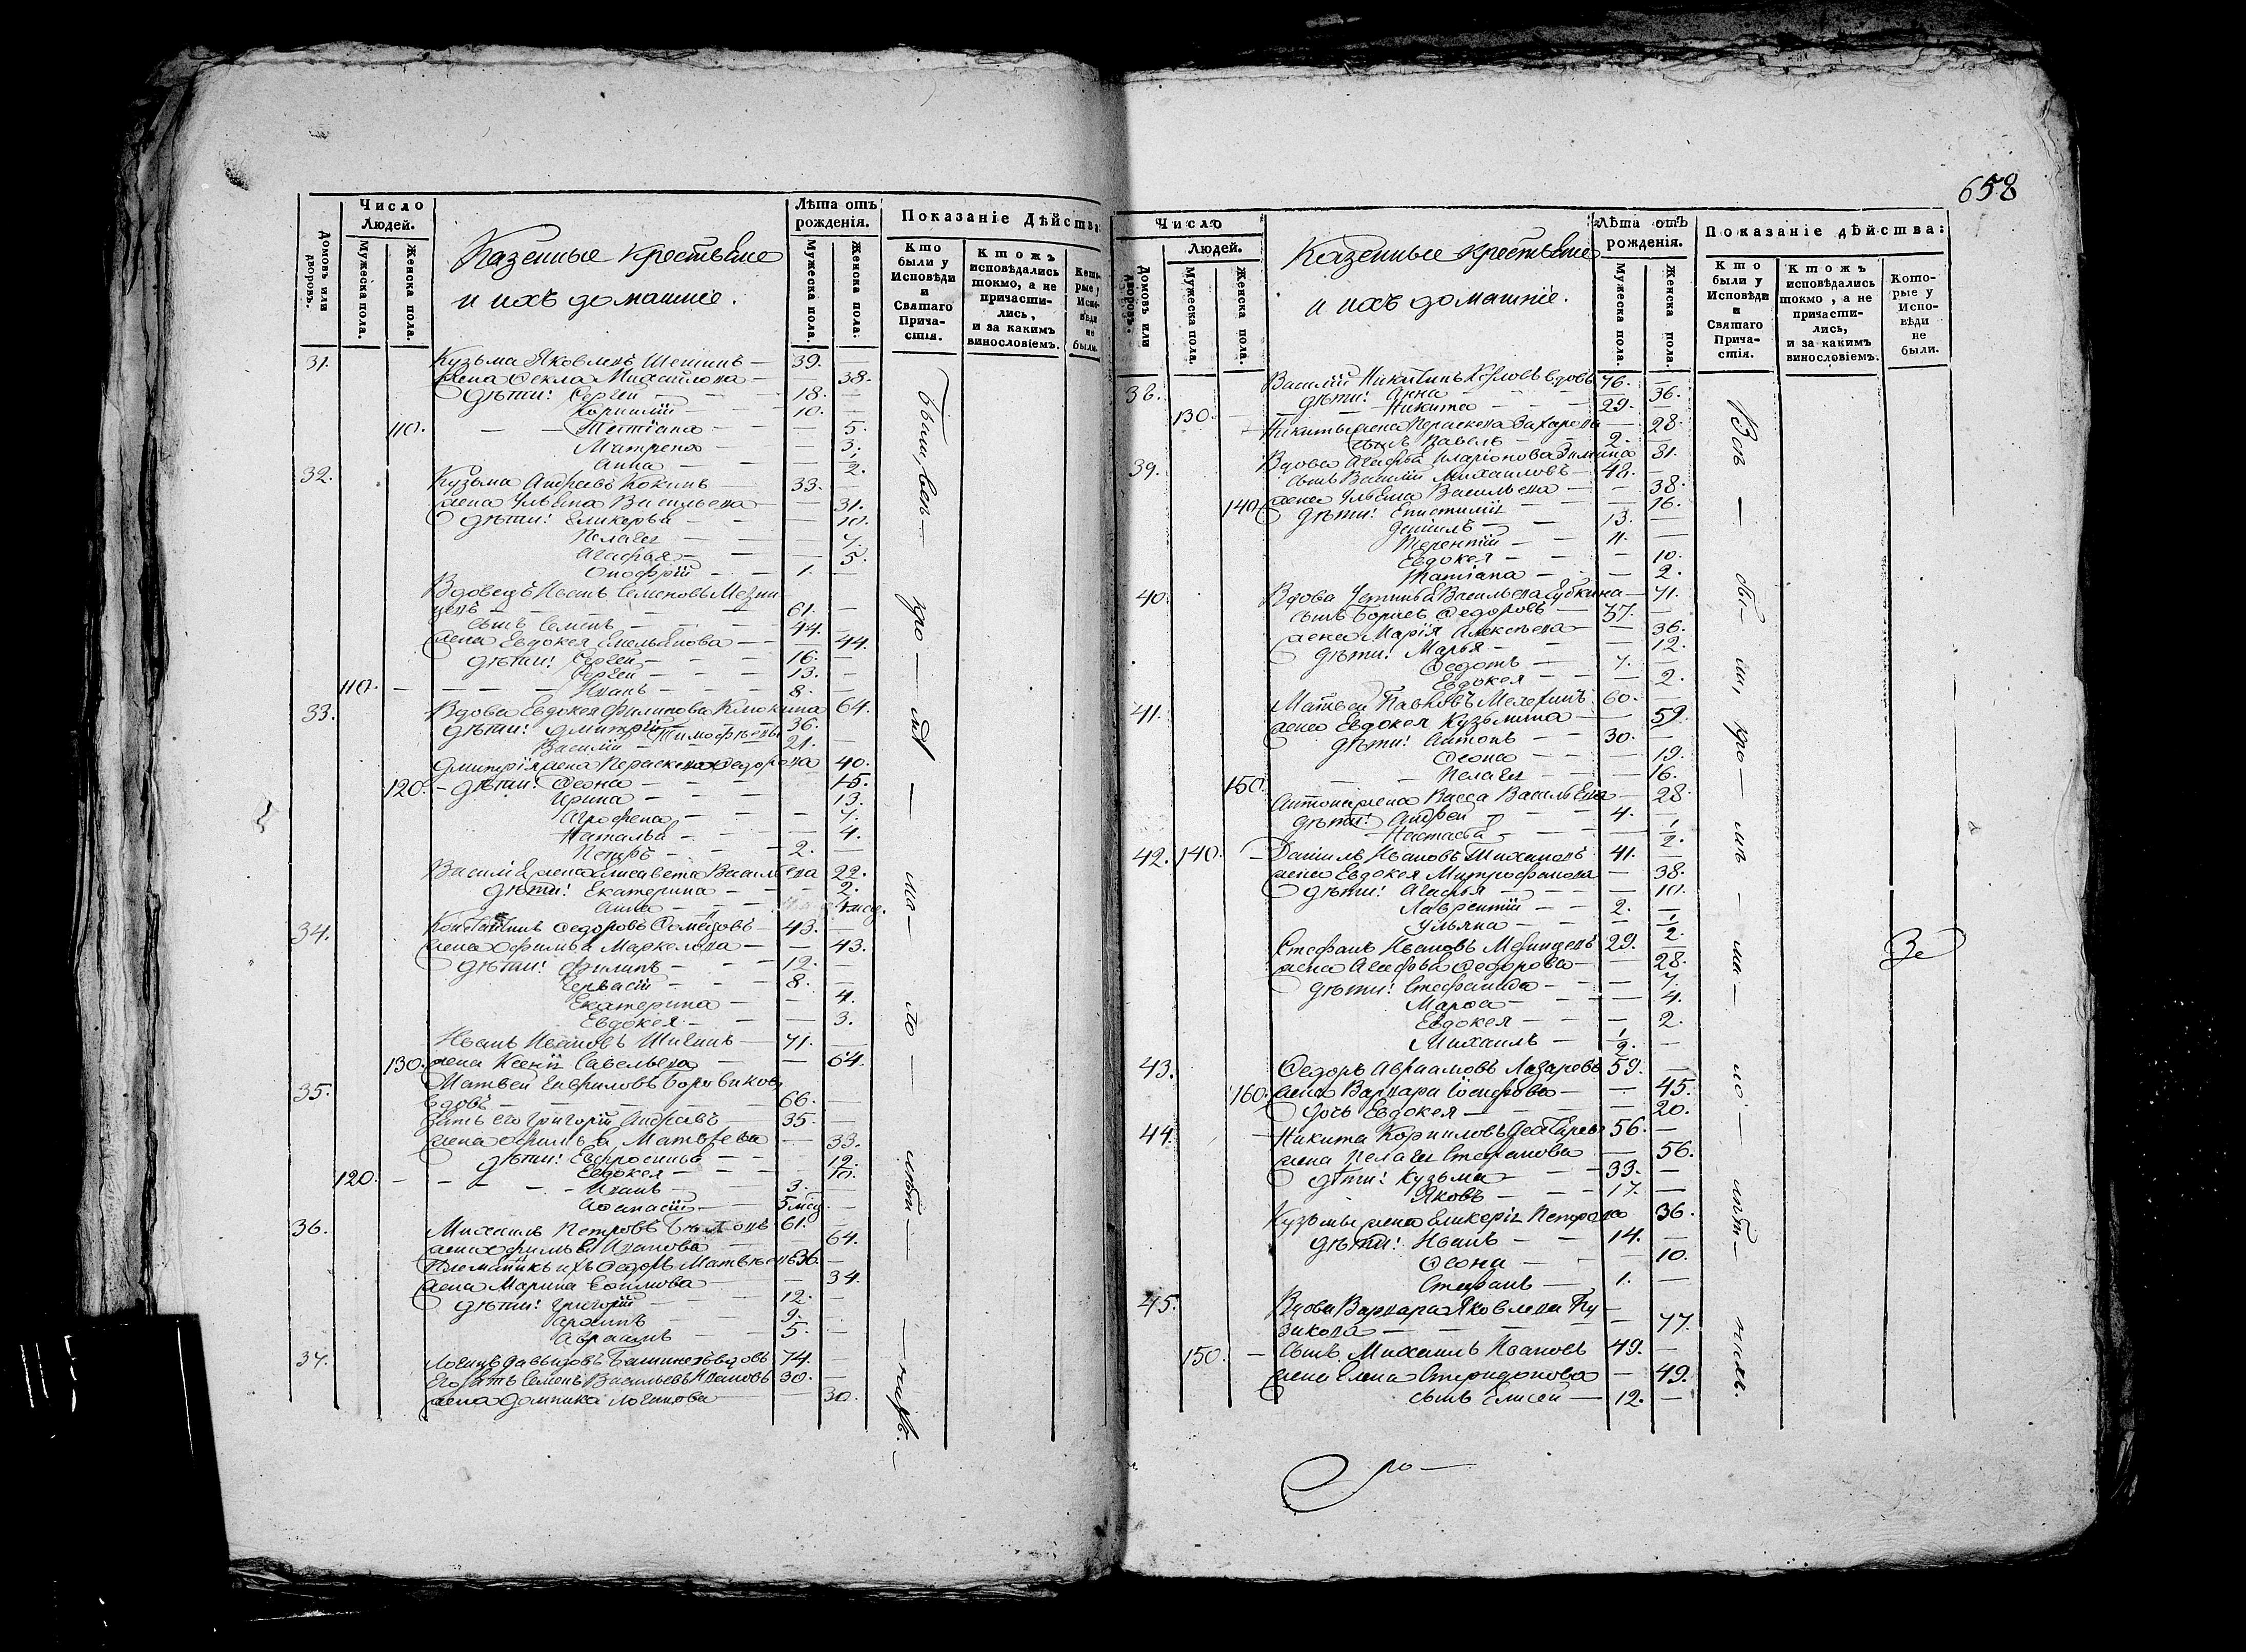 Число Людей.
Домовъ или дворовъ.
Мужеска пола.
Женска пола.
Казенные крестьяне
и ихъ домашнiе.
Лѣта отъ рожденiя.
Мужеска пола.
Женска пола.
Показанiе Дѣйства:
Кто были у Исповѣди и Святаго Причастiя.
Ктожъ исповѣдались токмо, а не причастились, и за какимъ винословiемъ.
Которые у Исповѣди не были.
31. Кузьма Яковлевъ 39. —
жена Фекла Михайлова — 38.
дѣти: Сергей — 18. —
Корнилiй — 10. —
110. — Татiана — 5.
Матрена — 3.
Анна — 1/2.
32. Кузьма Андреевъ Кокинъ — 33.
жена Ульяна Васильева — 31.
дѣти: Гликерья — 10.
Пелагея — 7.
Агафья — 5.
Онофрiй — 1. —
Вдовецъ Иванъ Семеновъ
61. —
сынъ Семенъ — 44. —
жена Евдокея Емельянова — 44.
дѣти: Сергей — 16. —
Сергей — 13. —
110. — Иванъ — 8. —
33. Вдова Евдокея Филипова Клюкина 64.
дѣти: Дмитрiй Тимофѣевы 36.
Василiй — 21. —
Дмитрiя жена Параскева Федорова 40.
120. — дѣти: Феона — 15.
Ирина — 13.
Агрофена — 7.
Наталья — 4.
Петръ — 2. —
Василiя жена Елисавета Васильева 22.
дѣти: Екатерина — 2.
Анна —
34. Константинъ Федоровъ 43. —
жена Офимья Маркелова — 43.
дѣти: Филипъ — 12. —
Гервасiй — 8. —
Екатерина — 4.
Евдокея — 3.
Иванъ Ивановъ Шигинъ — 71. —
130. жена Ксенiя Савельева — 64.
35. Матвей Гавриловъ Боровиковъ
вдовъ — 66. —
зять его Григорiй 35. —
жена Офимья Матвеева — 33.
дѣти: Евфросинья — 12.
Евдокея — 10.
120. — Иванъ — 3. —
Афанасiй — 5 мѣс. —
36. Михаилъ Петровъ 61. —
жена Офимья Иванова — 64.
Племянникъ ихъ Федоръ Матвѣевъ 36. —
жена Марина Ефимова — 34.
дѣти: Григорiй — 12. —
9. —
Авраамъ — 5. —
37. Логинъ Давыдовъ вдовъ 74. —
Его зять Семенъ Васильевъ Ивановъ 30. —
жена Домника Логинова — 30.
Были, всѣ — кро — мѣ — ма — ло — лѣт —
658
Число Людей.
Домовъ или дворовъ.
Мужеска пола.
Женска пола.
Казенные крестьяне
и ихъ домашнiе.
Лѣта отъ рожденiя.
Мужеска пола.
Женска пола.
Показанiе дѣйства:
Кто были у Исповѣди и Святаго Причастiя.
Ктожъ исповѣдались токмо, а не причастились, и за какимъ винословiемъ.
Которые у Исповѣди не были.
38. Василiй Никитинъ вдовъ 76. —
дѣти: Анна — 36.
130. — Никита — 29. —
Никиты жена Параскева Захарова — 28.
сынъ Павелъ — 2. —
39. Вдова Агафья Иларiонова Зимина 81.
сынъ Василiй Михаиловъ — 48. —
жена Ульяна Васильева — 38.
140. дѣти: Епистимiя — 16.
Данiилъ — 13. —
Терентiй — 11. —
Евдокея — 10.
Татiана — 2.
40. Вдова Устинья Васильева Губкина — 71.
сынъ Борисъ Федоровъ — 37. —
жена Марiя Алексѣева — 36.
дѣти: Марья — 12.
Федотъ — 7. —
Евдокея — 2.
41. Матвей 60. —
жена Евдокея Кузьмина — 59.
дѣти: Антонъ — 30. —
Феона — 19.
150. — Пелагея — 16.
Антона жена Васса Васильева — 28.
дѣти: Андрей — 4. —
Настасья — 1/2.
42. 140. — Данiилъ Ивановъ Тихановъ 41. —
жена Евдокея Митрофанова — 38.
дѣти: Агафья — 10.
Лаврентiй — 2. —
Ульяна — 1/2.
Стефанъ Ивановъ 29. —
жена Агафья Федорова — 28.
дѣти: Стефанида — 7.
Марфа — 4.
Евдокея — 2.
Михаилъ — 1/2. —
43. Федоръ Авраамовъ Лазаревъ 59. —
160. жена Варвара Iосифова — 45.
дочь Евдокея — 20.
44. Никита Корниловъ 56. —
жена Пелагея Стефанова — 56.
дѣти: Кузьма — 33. —
Яковъ — 17. —
Кузьмы жена Гликерiя Петрова 36.
дѣти: Иванъ — 14. —
Феона — 10.
Стефанъ — 1. —
45. Вдова Варвара Яковлева Пу-
зикова — 77.
150. — сынъ Михаилъ Ивановъ 49. —
жена Елена Спиридонова — 49.
сынъ Елисей — 12. —
Всѣ — бы — ли, кро — мѣ — ма — ло — лѣт — нихъ.